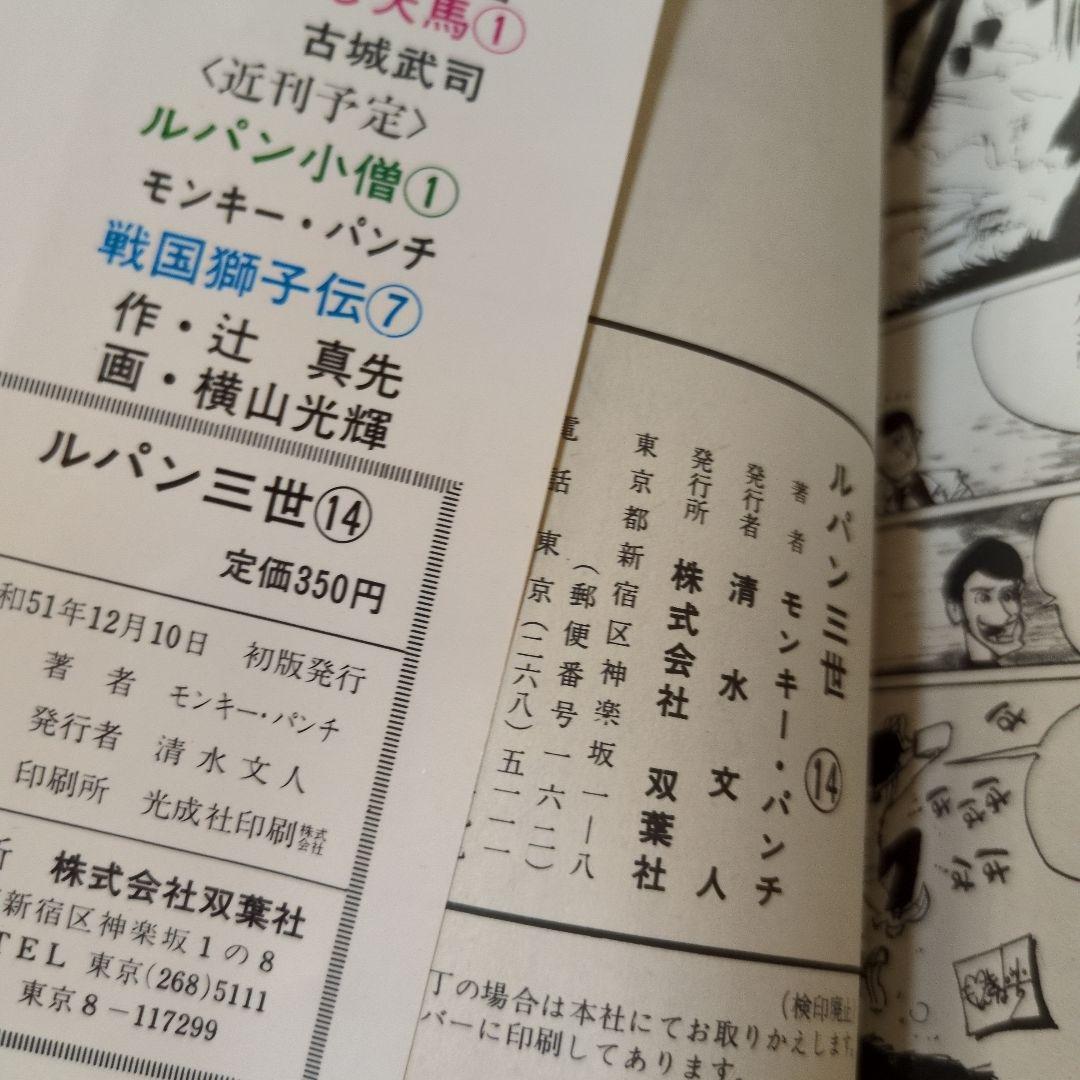 馬①
古城武司
〈近刊予定〉
ルパン小僧①
モンキー・パンチ
戦国獅子伝⑦
作・辻 真先
画・横山光輝
ルパン三世⑭
定価350円
和51年12月10日 初版発行
著者 モンキー・パンチ
発行者 清水文人
印刷所 光成社印刷株式会社
所 株式会社双葉社
新宿区神楽坂1の8
TEL 東京(268)5111
東京8-117299
ルパン三世 ⑭
著者 モンキー・パンチ
発行者 清水文人
発行所 株式会社 双葉社
東京都新宿区神楽坂一―八
(郵便番号一六二)
電話 東京(二六八)五一一一
(検印廃止)
丁の場合は本社にてお取りかえします。
バーに印刷してあります。